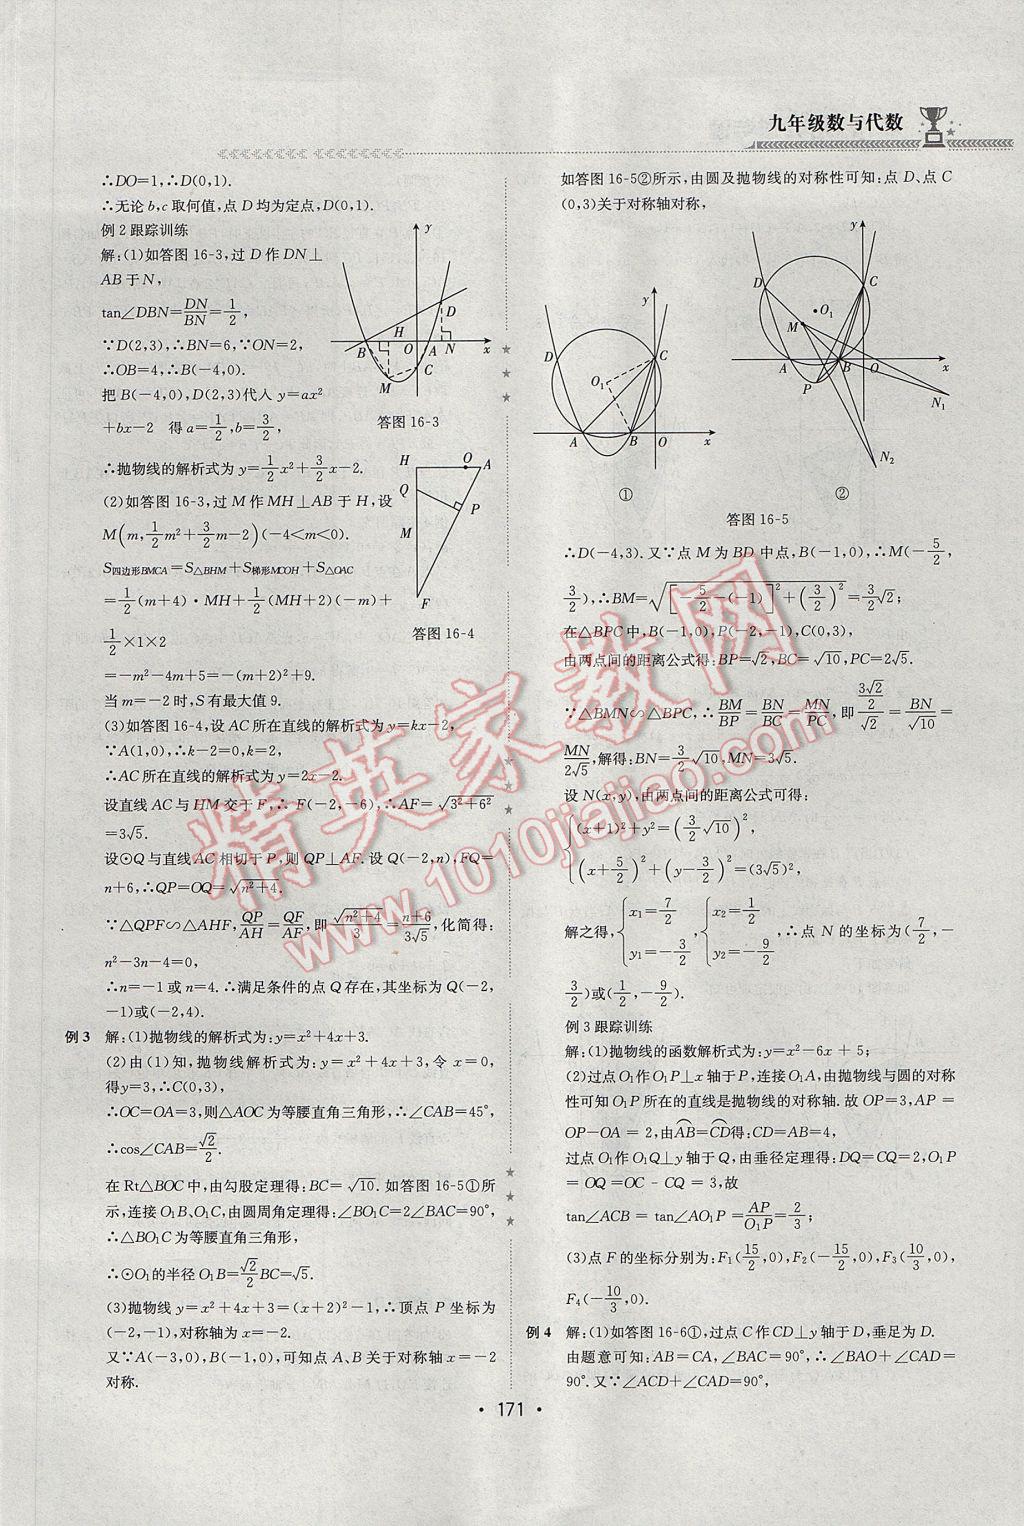 九年级数与代数
∴DO=1,∴D(0,1).
∴无论b,c取何值,点D均为定点,D(0,1).
例2跟踪训练
解:(1)如答图16-3,过D作DN⊥
AB于N,
tan∠DBN=DN/BN=1/2,
∵D(2,3),∴BN=6,∵ON=2,
∴OB=4,∴B(-4,0).
把B(-4,0),D(2,3)代人y=ax²
+bx-2 得a=1/2,b=3/2,
∴抛物线的解析式为y=1/2x²+3/2x-2.
(2)如答图16-3,过M作MH⊥AB于H,设
M(m,1/2m²+3/2m-2)(-4<m<0).
S四边形BMCA=S△BHM+S梯形MCOH+S△OAC
=1/2(m+4)·MH+1/2(MH+2)(-m)+
1/2×1×2
=-m²-4m+5=-(m+2)²+9.
当m=-2时,S有最大值9.
(3)如答图16-4,设AC所在直线的解析式为y=kx-2,
∵A(1,0),∴k-2=0,k=2,
∴AC所在直线的解析式为y=2x-2.
设直线AC与HM交于F,∴F(-2,-6),∴AF=√(3²+6²)
=3√5.
设⊙Q与直线AC相切于P,则QP⊥AF.设Q(-2,n),FQ=
n+6,∴QP=OQ=√(n²+4).
∵△QPF∽△AHF,QP/AH=QF/AF,即√(n²+4)/3=(n+6)/3√5,化简得:
n²-3n-4=0,
∴n=-1或n=4.∴满足条件的点Q存在,其坐标为Q(-2,
-1)或(-2,4).
例3 解:(1)抛物线的解析式为:y=x²+4x+3.
(2)由(1)知,抛物线解析式为:y=x²+4x+3,令x=0,
得y=3,∴C(0,3),
∴OC=OA=3,则△AOC为等腰直角三角形,∴∠CAB=45°,
∴cos∠CAB=√2/2.
在Rt△BOC中,由勾股定理得:BC=√10.如答图16-5①所
示,连接O₁B、O₁C,由圆周角定理得:∠BO₁C=2∠BAC=90°,
∴△BO₁C为等腰直角三角形,
∴⊙O₁的半径O₁B=√2/2BC=√5.
(3)抛物线y=x²+4x+3=(x+2)²-1,∴顶点P坐标为
(-2,-1),对称轴为x=-2.
又∵A(-3,0),B(-1,0),可知点A、B关于对称轴x=-2
对称.
y
D
H
B
O
A
N
x
C
M
答图16-3
H
O
A
Q
P
M
F
答图16-4
如答图16-5②所示,由圆及抛物线的对称性可知:点D、点C
(0,3)关于对称轴对称,
y
D
C
O₁
A
B
O
x
①
y
D
C
O₁
M
A
B
O
x
P
N₁
N₂
②
答图16-5
∴D(-4,3).又∵点M为BD中点,B(-1,0),∴M(-5/2,
3/2),∴BM=√([-5/2-(-1)]²+(3/2)²)=3/2√2;
在△BPC中,B(-1,0),P(-2,-1),C(0,3),
由两点间的距离公式得:BP=√2,BC=√10,PC=2√5.
∵△BMN∽△BPC,∴BM/BP=BN/BC=MN/PC,即(3/2√2)/√2=BN/√10=
MN/2√5,解得:BN=3/2√10,MN=3√5.
设N(x,y),由两点间的距离公式可得:
{(x+1)²+y²=(3/2√10)²,
(x+5/2)²+(y-3/2)²=(3√5)²,
解之得,{x₁=7/2 y₁=-3/2,{x₂=1/2 y₂=-9/2,∴点N的坐标为(7/2,-
3/2)或(1/2,-9/2).
例3跟踪训练
解:(1)抛物线的函数解析式为:y=x²-6x+5;
(2)过点O₁作O₁P⊥x轴于P,连接O₁A,由抛物线与圆的对称
性可知O₁P所在的直线是抛物线的对称轴.故OP=3,AP=
OP-OA=2,由⌒AB=⌒CD得:CD=AB=4,
过点O₁作O₁Q⊥y轴于Q,由垂径定理得:DQ=CQ=2,O₁P
=OQ=OC-CQ=3,故
tan∠ACB=tan∠AO₁P=AP/O₁P=2/3;
(3)点F的坐标分别为:F₁(15/2,0),F₂(-15/2,0),F₃(10/3,0),
F₄(-10/3,0).
例4 解:(1)如答图16-6①,过点C作CD⊥y轴于D,垂足为D.
由题意可知:AB=CA,∠BAC=90°,∴∠BAO+∠CAD=
90°.又∵∠ACD+∠CAD=90°,
·171·
精英家教网
www.1010jiajiao.com